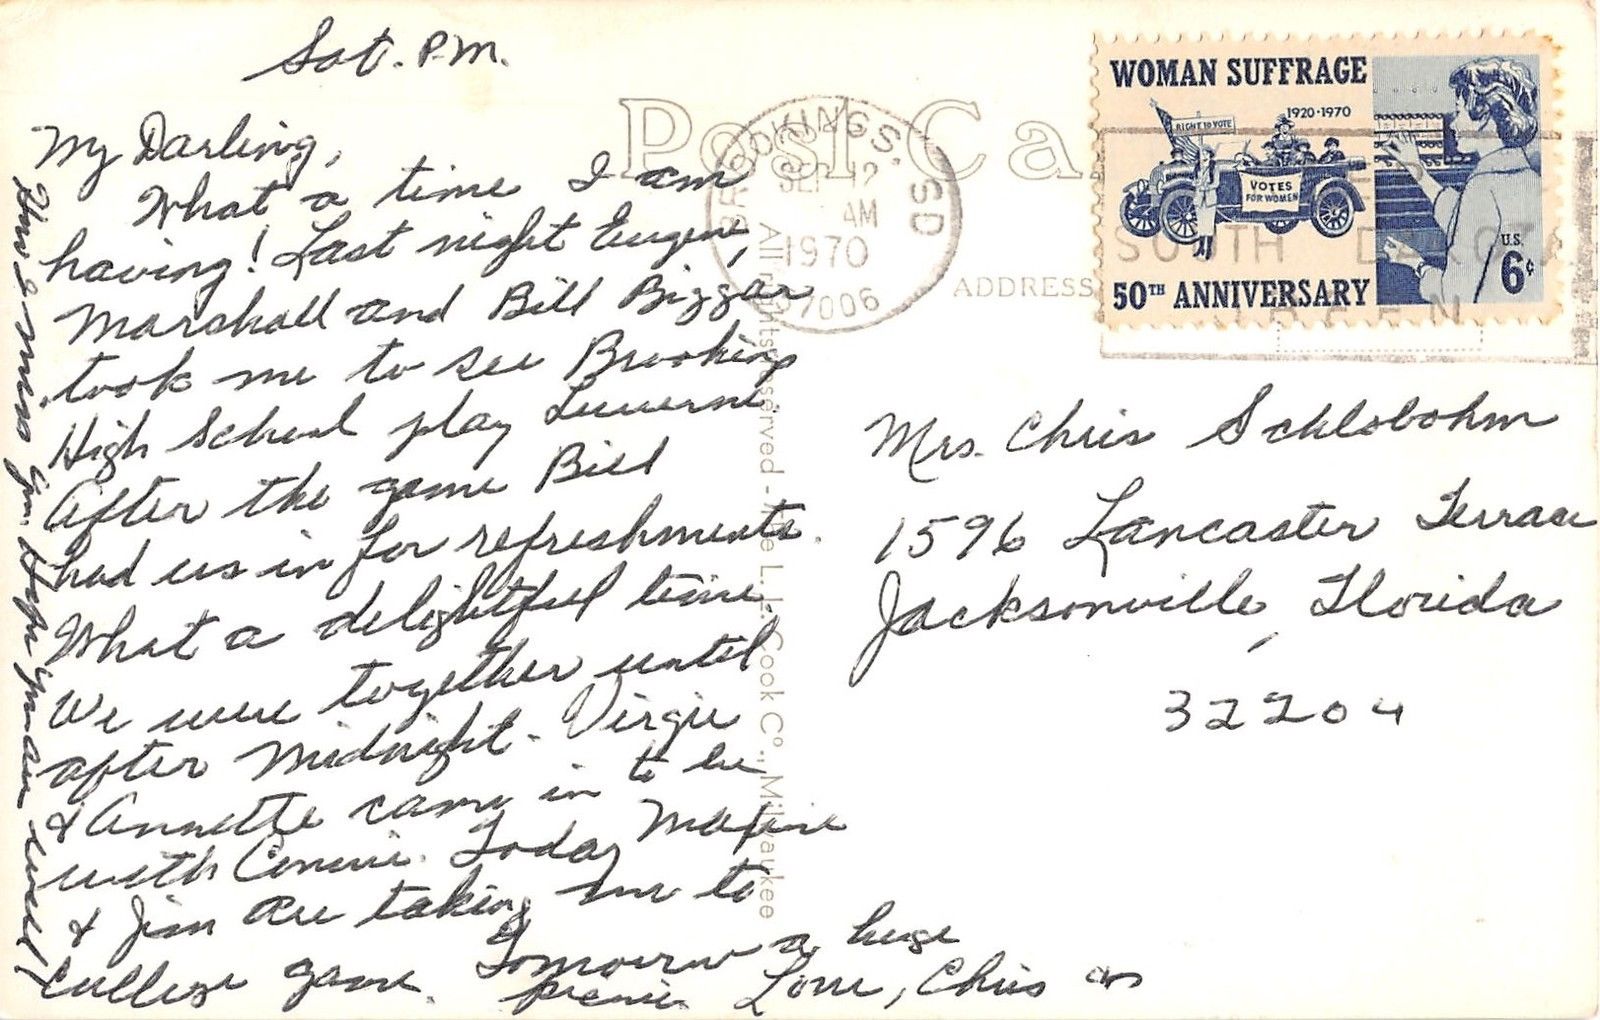 Sat. P.M.
My Darling,
What a time I am
having! Last night Eugene,
Marshall and Bill Bizzar
took me to see Brookings
High School play Luverne
After the game Bill
had us in for refreshments.
What a delightful time.
We were together until
after midnight - Virgie
& Annette came in to be
with Connie. Today Maxine
& Jim are taking me to
college game. Tomorrow a huge
picnic Love, Chris
How I miss you. Hope you are well!
Post Ca
ADDRESS
BROOKINGS, SD
SEP 12
AM
1970
57006
SOUTH DAKOTA
WOMAN SUFFRAGE
1920-1970
RIGHT TO VOTE
VOTES
FOR WOMEN
50TH ANNIVERSARY
U.S.
6¢
All rights reserved - The L. L. Cook Co., Milwaukee
Mrs. Chris Schlobohm
1596 Lancaster Terrace
Jacksonville, Florida
32204